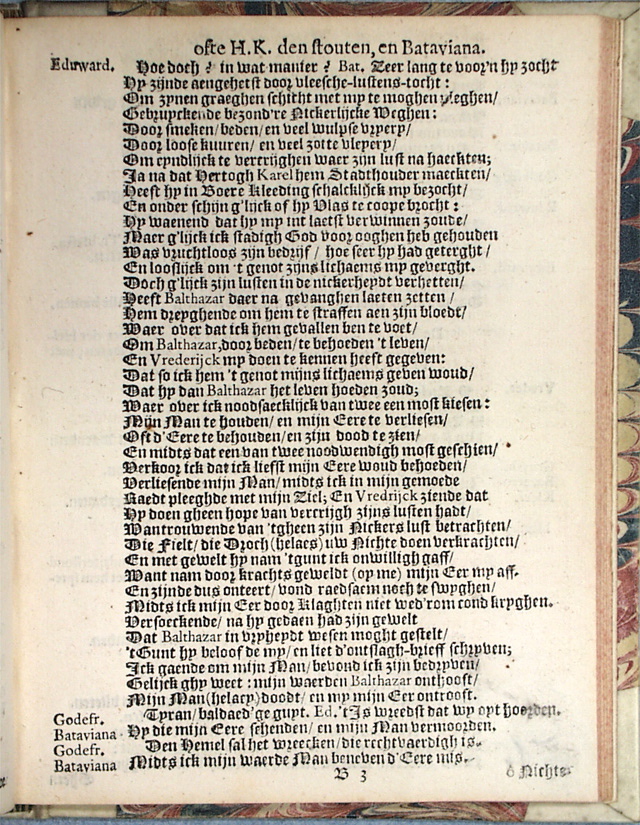 ofte H.K. den stouten, en Bataviana.
Eduward. Hoe doch? in wat manier? Bat. Zeer lang te voor'n hy zocht
Hy zijnde aengehetst door vleesche-lustens-tocht:
Om zynen graeghen schicht met my te moghen pleghen/
Gebruyckende bezond're Nickerlijcke Weghen:
Door smeken/beden/en veel wulpse vryery/
Door loose kuuren/ en veel zotte vleyery/
Om eyndlijck te vercrijghen waer zijn lust na haeckten;
Ja na dat Hertogh Karel hem Stadthouder maeckten/
Heeft hy in Boere Kleeding schalcklijck my bezocht/
En onder schijn g'lijck of hy Vlas te coope brocht:
Hy waenend dat hy my int laetst verwinnen zoude/
Maer g'lijck ick stadigh God voor ooghen heb gehouden
Was vruchtloos zijn bedrijf/ hoe seer hy had geterght/
En looslijck om 't genot zijns lichaems my geverght.
Doch g'lijck zijn lusten in de nickerheydt verhetten/
Heeft Balthazar daer na gevanghen laeten zetten/
Hem dreyghende om hem te straffen aen zijn bloedt/
Waer over dat ick hem gevallen ben te voet/
Om Balthazar, door beden/te behoeden 't leven/
En Vrederijck my doen te kennen heeft gegeven:
Dat so ick hem 't genot mijns lichaems geven woud/
Dat hy dan Balthazar het leven hoeden zoud;
Waer over ick noodsaecklijck van twee een most kiesen:
Mijn Man te houden/ en mijn Eere te verliesen/
Oft d'Eere te behouden/en zijn dood te zien/
En midts dat een van twee noodwendigh most geschien/
Verkoor ick dat ick liefst mijn Eere woud behoeden/
Verliesende mijn Man/ midts ick in mijn gemoede
Raedt pleeghde met mijn Ziel; En Vredrijck ziende dat
Hy doen gheen hope van vercrijgh zijns lusten hadt/
Wantrouwende van 'tgheen zijn Nickers lust betrachten/
Die Fielt/ die Droch (helaes) uw Nichte doen verkrachten/
En met gewelt hy nam 'tgunt ick onwilligh gaff/
Want nam door krachts geweldt (op me) mijn Eer my aff.
En zijnde dus onteert/ vond raedsaem noch te swyghen/
Midts ick mijn Eer door Klaghten niet wed'rom cond kryghen.
Versoeckende/ na hy gedaen had zijn gewelt
Dat Balthazar in vryheydt wesen moght gestelt/
'tGunt hy beloof de my/ en liet d'ontslagh-brieff schryven;
Ick gaende om mijn Man/ bevond ick zijn bedryven/
Gelijck ghy weet: mijn waerden Balthazar onthooft/
Mijn Man (helacy) doodt/ en my mijn Eer ontrooft.
Godefr. Tyran/ baldaed'ge guyt. Ed. 't Is wreedst dat wy oyt hoorden.
Bataviana Hy die mijn Eere schenden/ en mijn Man vermoorden.
Godefr. Den Hemel sal het wreecken/die rechtvaerdigh is.
Bataviana Midts ick mijn waerde Man beneven d'Eere mis.
B 3 ô Nichte